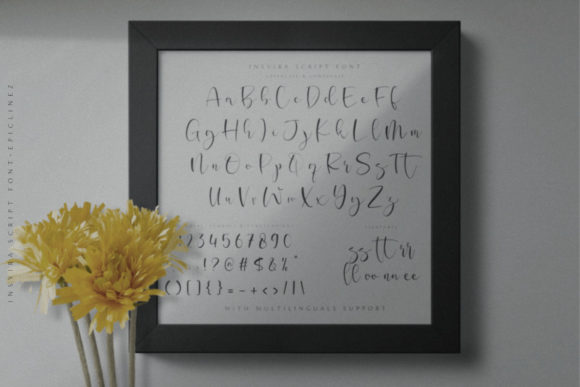 INSVIRA SCRIPT FONT
UPPERCASE & LOWERCASE
A a B b C c D d E e F f
G g H h I i J j K k L l M m
N n O o P p Q q R r S s T t
U u V v W w X x Y y Z z
1 2 3 4 5 6 7 8 9 0
! ? @ # $ & %
( ) [ ] { } = - + < > / | \
LIGATURE
ss tt rr
ll oo nn ee
WITH MULTILINGUALS SUPPORT
INSVIRA SCRIPT FONT-EPICLINEZ